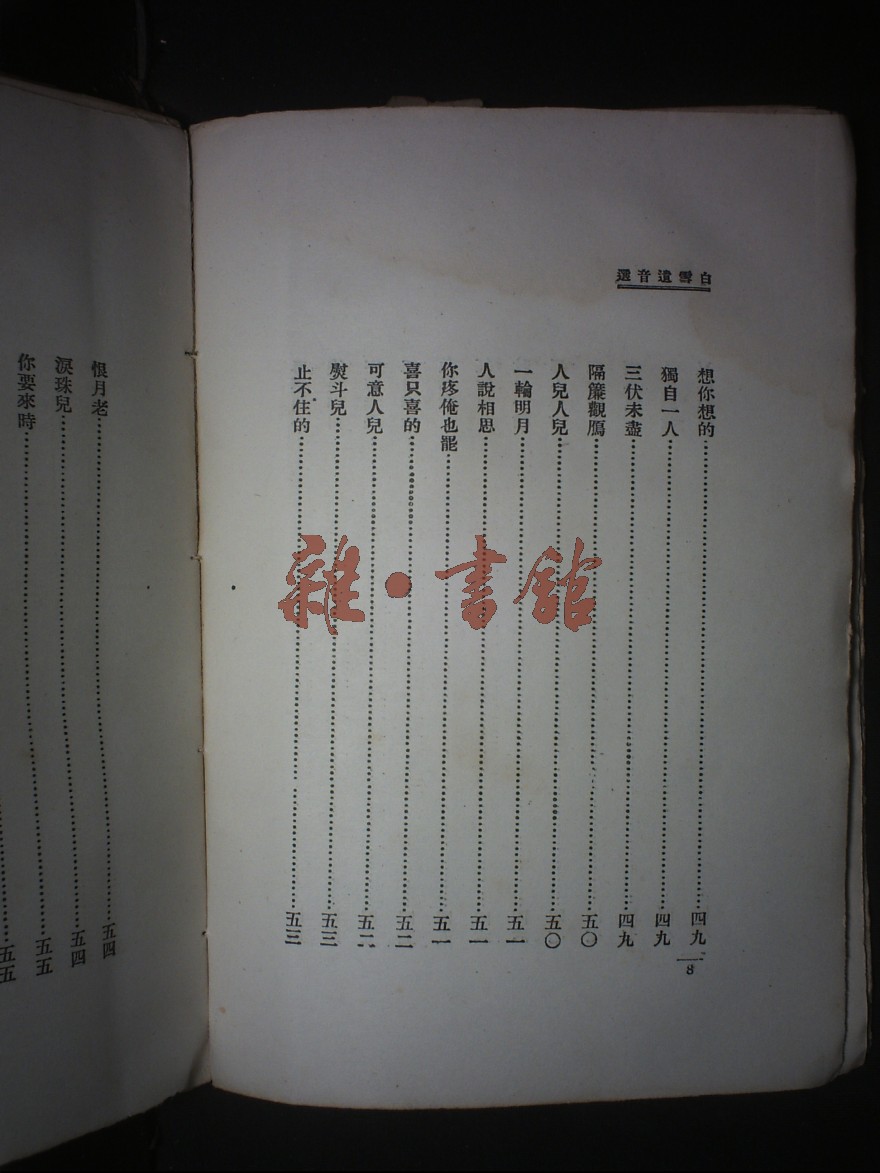 白雪遺音選
想你想的⋯⋯四九
獨自一人⋯⋯四九
三伏未盡⋯⋯四九
隔簾觀鴈⋯⋯五〇
人兒人兒⋯⋯五〇
一輪明月⋯⋯五一
人說相思⋯⋯五一
你疼俺也罷⋯⋯五一
喜只喜的⋯⋯五二
可意人兒⋯⋯五二
熨斗兒⋯⋯五三
止不住的⋯⋯五三
8
恨月老⋯⋯五四
淚珠兒⋯⋯五四
你要來時⋯⋯五五
五五
雜·書館